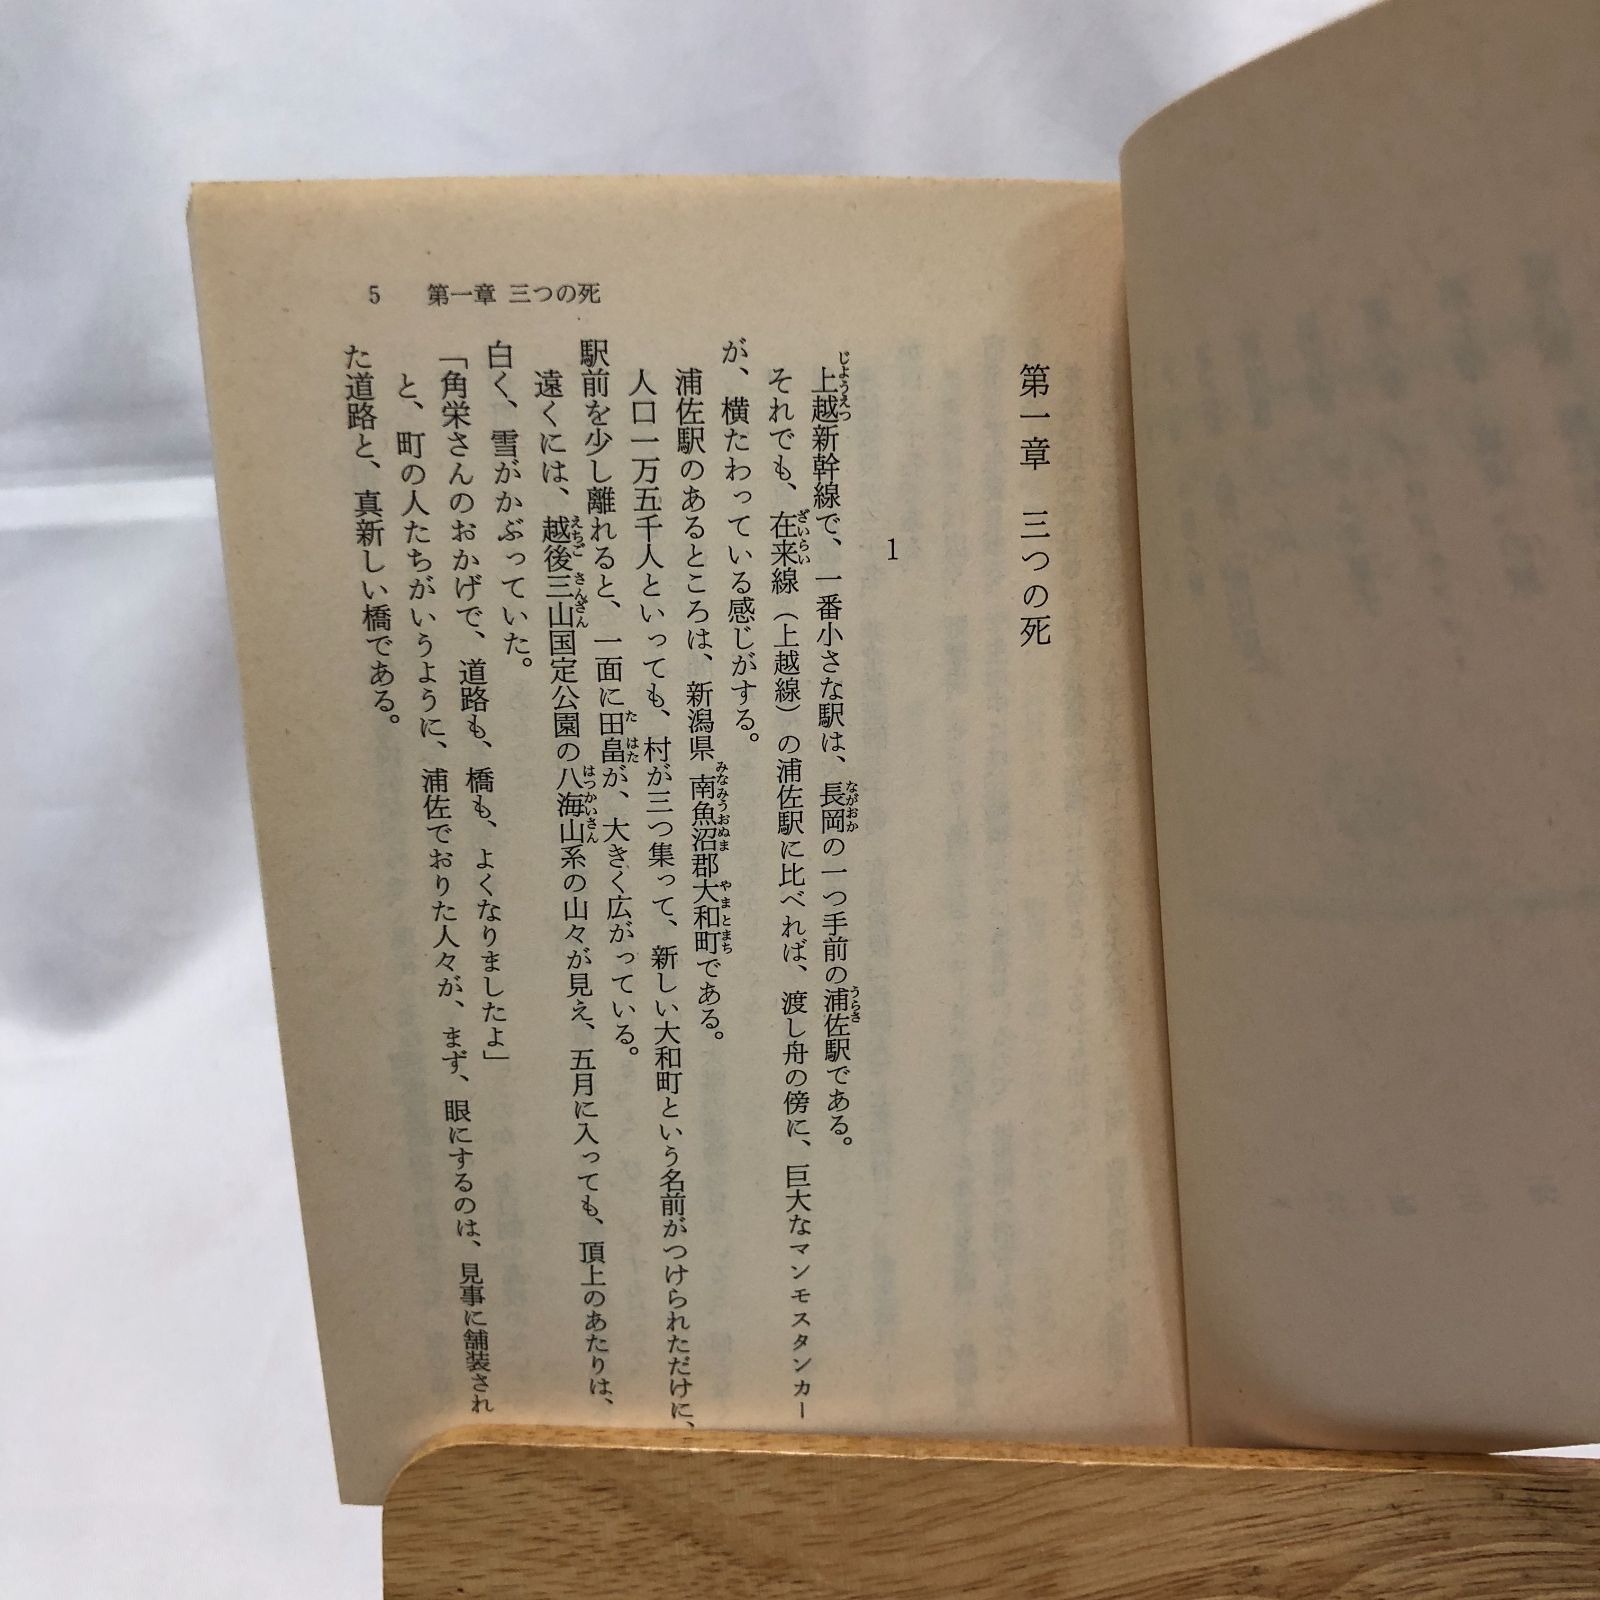 5　第一章 三つの死
第一章　三つの死
1
上越新幹線で、一番小さな駅は、長岡の一つ手前の浦佐駅である。
それでも、在来線（上越線）の浦佐駅に比べれば、渡し舟の傍に、巨大なマンモスタンカー
が、横たわっている感じがする。
浦佐駅のあるところは、新潟県南魚沼郡大和町である。
人口一万五千人といっても、村が三つ集って、新しい大和町という名前がつけられただけに、
駅前を少し離れると、一面に田畠が、大きく広がっている。
遠くには、越後三山国定公園の八海山系の山々が見え、五月に入っても、頂上のあたりは、
白く、雪がかぶっていた。
「角栄さんのおかげで、道路も、橋も、よくなりましたよ」
と、町の人たちがいうように、浦佐でおりた人々が、まず、眼にするのは、見事に舗装され
た道路と、真新しい橋である。